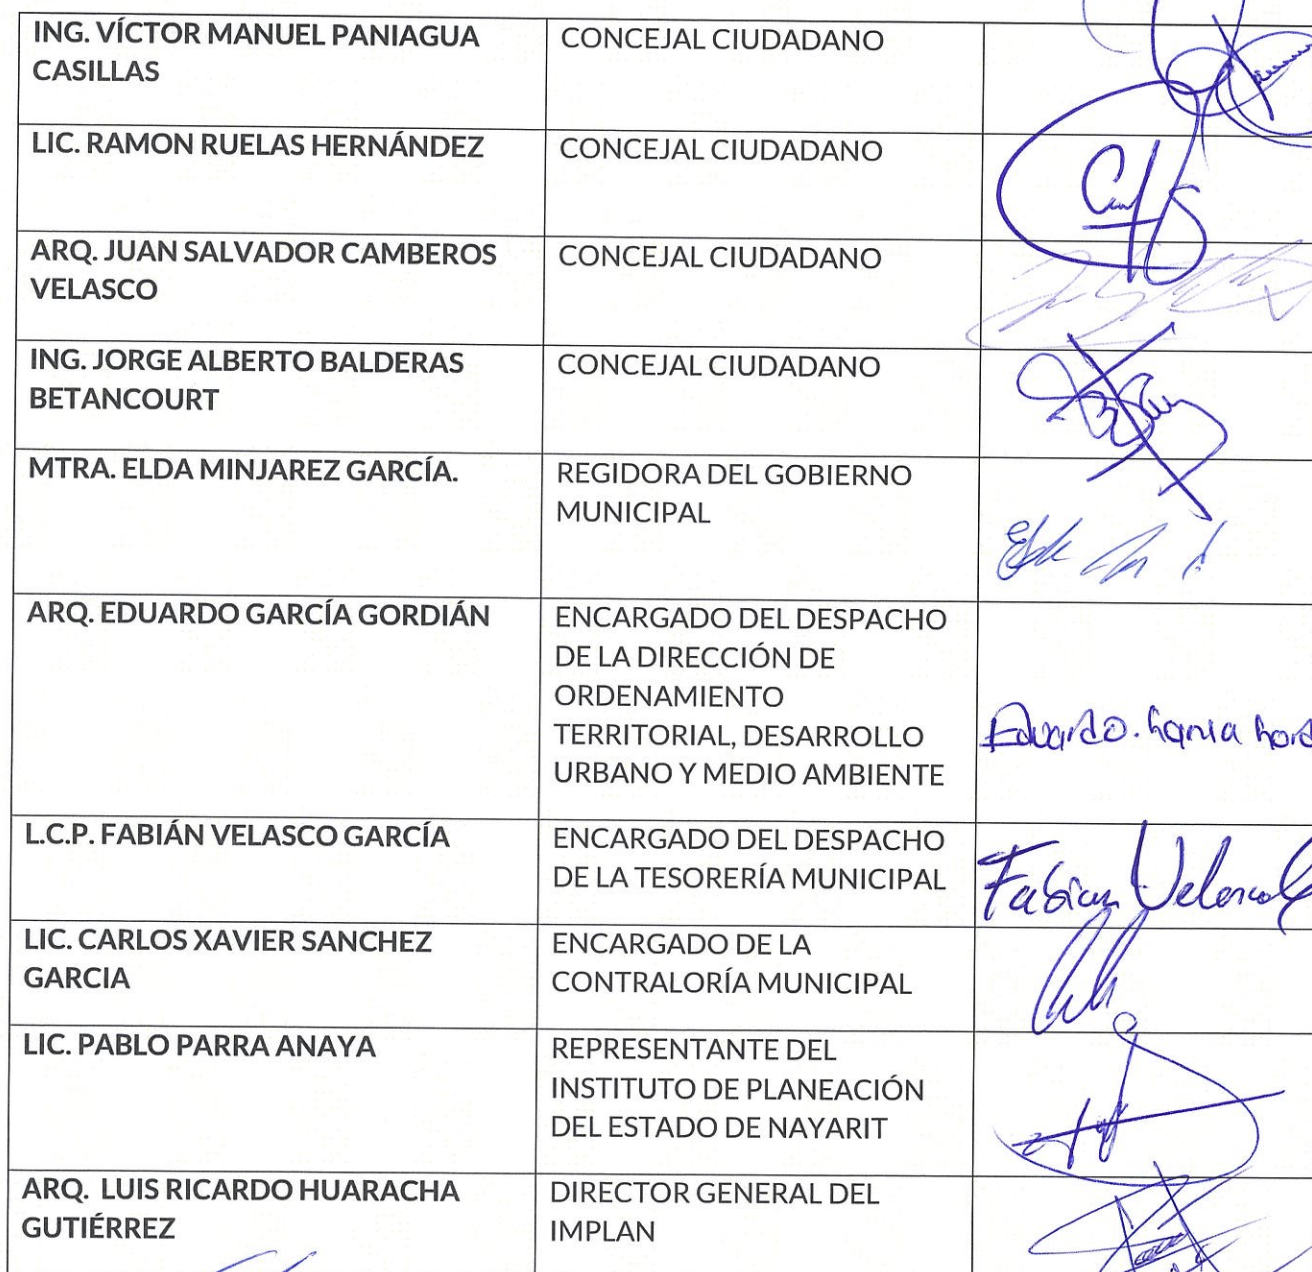 ING. VÍCTOR MANUEL PANIAGUA
CASILLAS
CONCEJAL CIUDADANO
LIC. RAMON RUELAS HERNÁNDEZ
CONCEJAL CIUDADANO
ARQ. JUAN SALVADOR CAMBEROS
VELASCO
CONCEJAL CIUDADANO
ING. JORGE ALBERTO BALDERAS
BETANCOURT
CONCEJAL CIUDADANO
MTRA. ELDA MINJAREZ GARCÍA.
REGIDORA DEL GOBIERNO
MUNICIPAL
ARQ. EDUARDO GARCÍA GORDIÁN
ENCARGADO DEL DESPACHO
DE LA DIRECCIÓN DE
ORDENAMIENTO
TERRITORIAL, DESARROLLO
URBANO Y MEDIO AMBIENTE
Eduardo. Garcia Gord
L.C.P. FABIÁN VELASCO GARCÍA
ENCARGADO DEL DESPACHO
DE LA TESORERÍA MUNICIPAL
Fabian Velasco
LIC. CARLOS XAVIER SANCHEZ
GARCIA
ENCARGADO DE LA
CONTRALORÍA MUNICIPAL
LIC. PABLO PARRA ANAYA
REPRESENTANTE DEL
INSTITUTO DE PLANEACIÓN
DEL ESTADO DE NAYARIT
ARQ. LUIS RICARDO HUARACHA
GUTIÉRREZ
DIRECTOR GENERAL DEL
IMPLAN